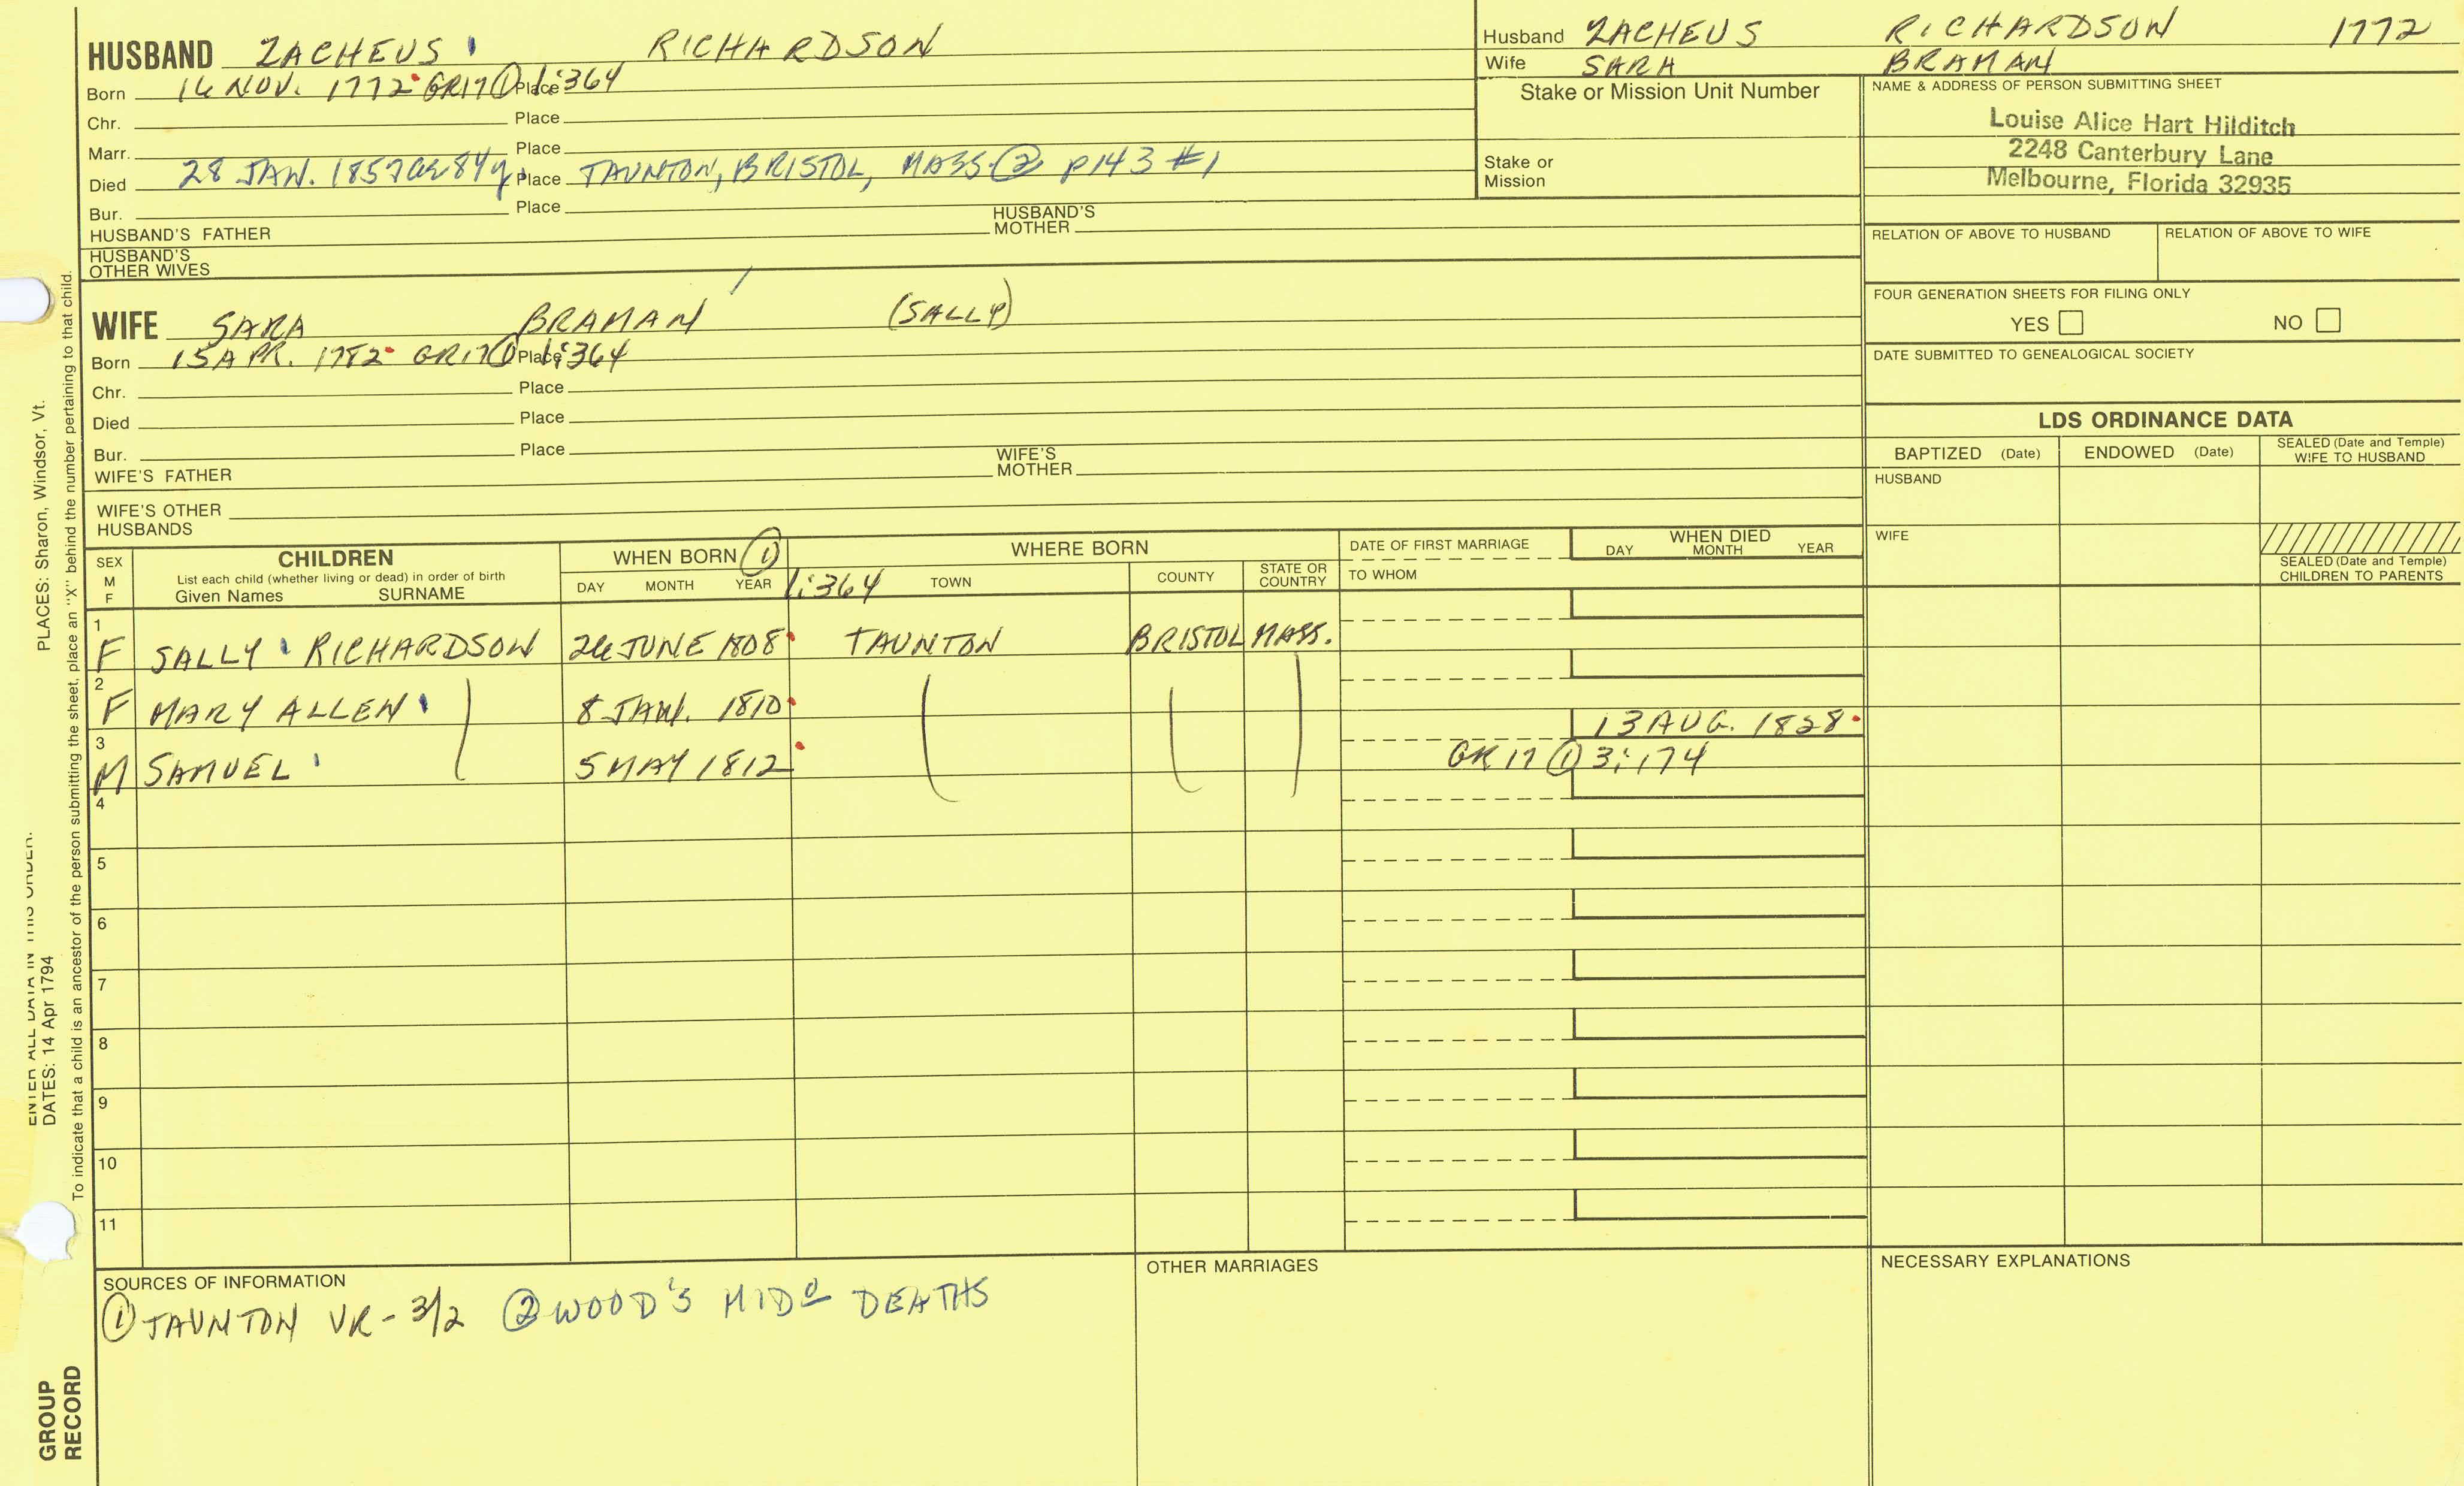 HUSBAND ZACHEUS RICHARDSON
Born 16 NOV. 1772 GR17 ① Place 1:364
Chr. Place
Marr. Place
Died 28 JAN. 1857 ae 84y. Place TAUNTON, BRISTOL, MASS. ② p143 #1
Bur. Place
HUSBAND'S FATHER HUSBAND'S MOTHER
HUSBAND'S OTHER WIVES
Husband ZACHEUS RICHARDSON 1772
Wife SARA BRAMAN
Stake or Mission Unit Number
Stake or Mission
NAME & ADDRESS OF PERSON SUBMITTING SHEET
Louise Alice Hart Hilditch
2248 Canterbury Lane
Melbourne, Florida 32935
RELATION OF ABOVE TO HUSBAND RELATION OF ABOVE TO WIFE
FOUR GENERATION SHEETS FOR FILING ONLY
YES NO
DATE SUBMITTED TO GENEALOGICAL SOCIETY
WIFE SARA BRAMAN (SALLY)
Born 15 APR. 1782 GR17 ① Place 1:364
Chr. Place
Died Place
Bur. Place
WIFE'S FATHER WIFE'S MOTHER
WIFE'S OTHER HUSBANDS
LDS ORDINANCE DATA
BAPTIZED (Date) ENDOWED (Date) SEALED (Date and Temple) WIFE TO HUSBAND
HUSBAND
WIFE
SEALED (Date and Temple) CHILDREN TO PARENTS
SEX M F
CHILDREN
List each child (whether living or dead) in order of birth
Given Names SURNAME
WHEN BORN ①
DAY MONTH YEAR 1:364
WHERE BORN
TOWN COUNTY STATE OR COUNTRY
DATE OF FIRST MARRIAGE
TO WHOM
WHEN DIED
DAY MONTH YEAR
1 F SALLY RICHARDSON 26 JUNE 1808 TAUNTON BRISTOL MASS.
2 F MARY ALLEN 8 JAN. 1810
3 M SAMUEL 5 MAY 1812 13 AUG. 1828
GR 17 ① 3:174
4
5
6
7
8
9
10
11
SOURCES OF INFORMATION
① TAUNTON VR - 3/2 ② WOOD'S MIDO DEATHS
OTHER MARRIAGES
NECESSARY EXPLANATIONS
ENTER ALL DATA IN THIS ORDER:
DATES: 14 Apr 1794 PLACES: Sharon, Windsor, Vt.
To indicate that a child is an ancestor of the person submitting the sheet, place an "X" behind the number pertaining to that child.
GROUP
RECORD